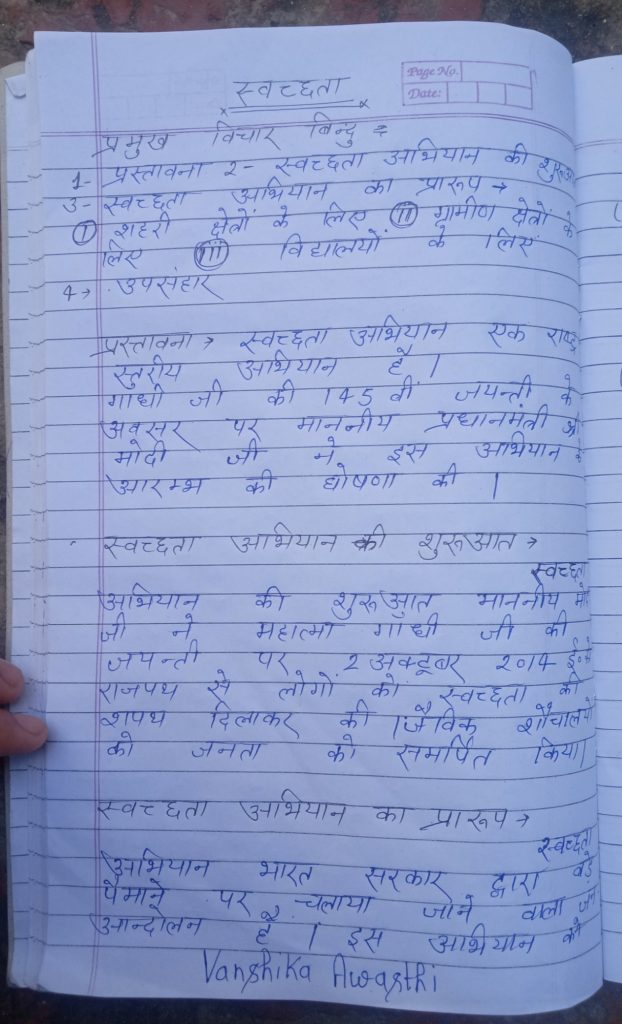 Page No.
Date:
स्वच्छता
प्रमुख विचार बिन्दु =
1- प्रस्तावना 2- स्वच्छता अभियान की
3- स्वच्छता अभियान का प्रारूप →
I शहरी क्षेत्रों के लिए II ग्रामीण क्षेत्रों के
लिए III विद्यालयों के लिए
4→ उपसंहार
प्रस्तावना → स्वच्छता अभियान एक राष्ट्र
स्तरीय अभियान है |
गाधी जी की 145 वीं जयन्ती के
अवसर पर माननीय प्रधानमंत्री श्री
मोदी जी ने इस अभियान के
आरम्भ की घोषणा की |
स्वच्छता अभियान की शुरूआत →
स्वच्छता
अभियान की शुरूआत माननीय
जी ने महात्मा गाधी जी की
जयन्ती पर 2 अक्टूबर 2014 ई० को
राजपथ से लोगों को स्वच्छता की
शपथ दिलाकर की | जैविक शौचालयों
को जनता को समर्पित किया|
स्वच्छता अभियान का प्रारूप →
स्वच्छता
अभियान भारत सरकार द्वारा बड़े
पैमाने पर चलाया जाने वाला जन
आन्दोलन है | इस अभियान को
Vanshika Awasthi